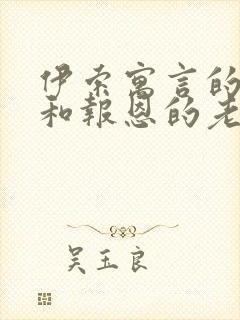 伊索寓言的
和報恩的老
吴玉良